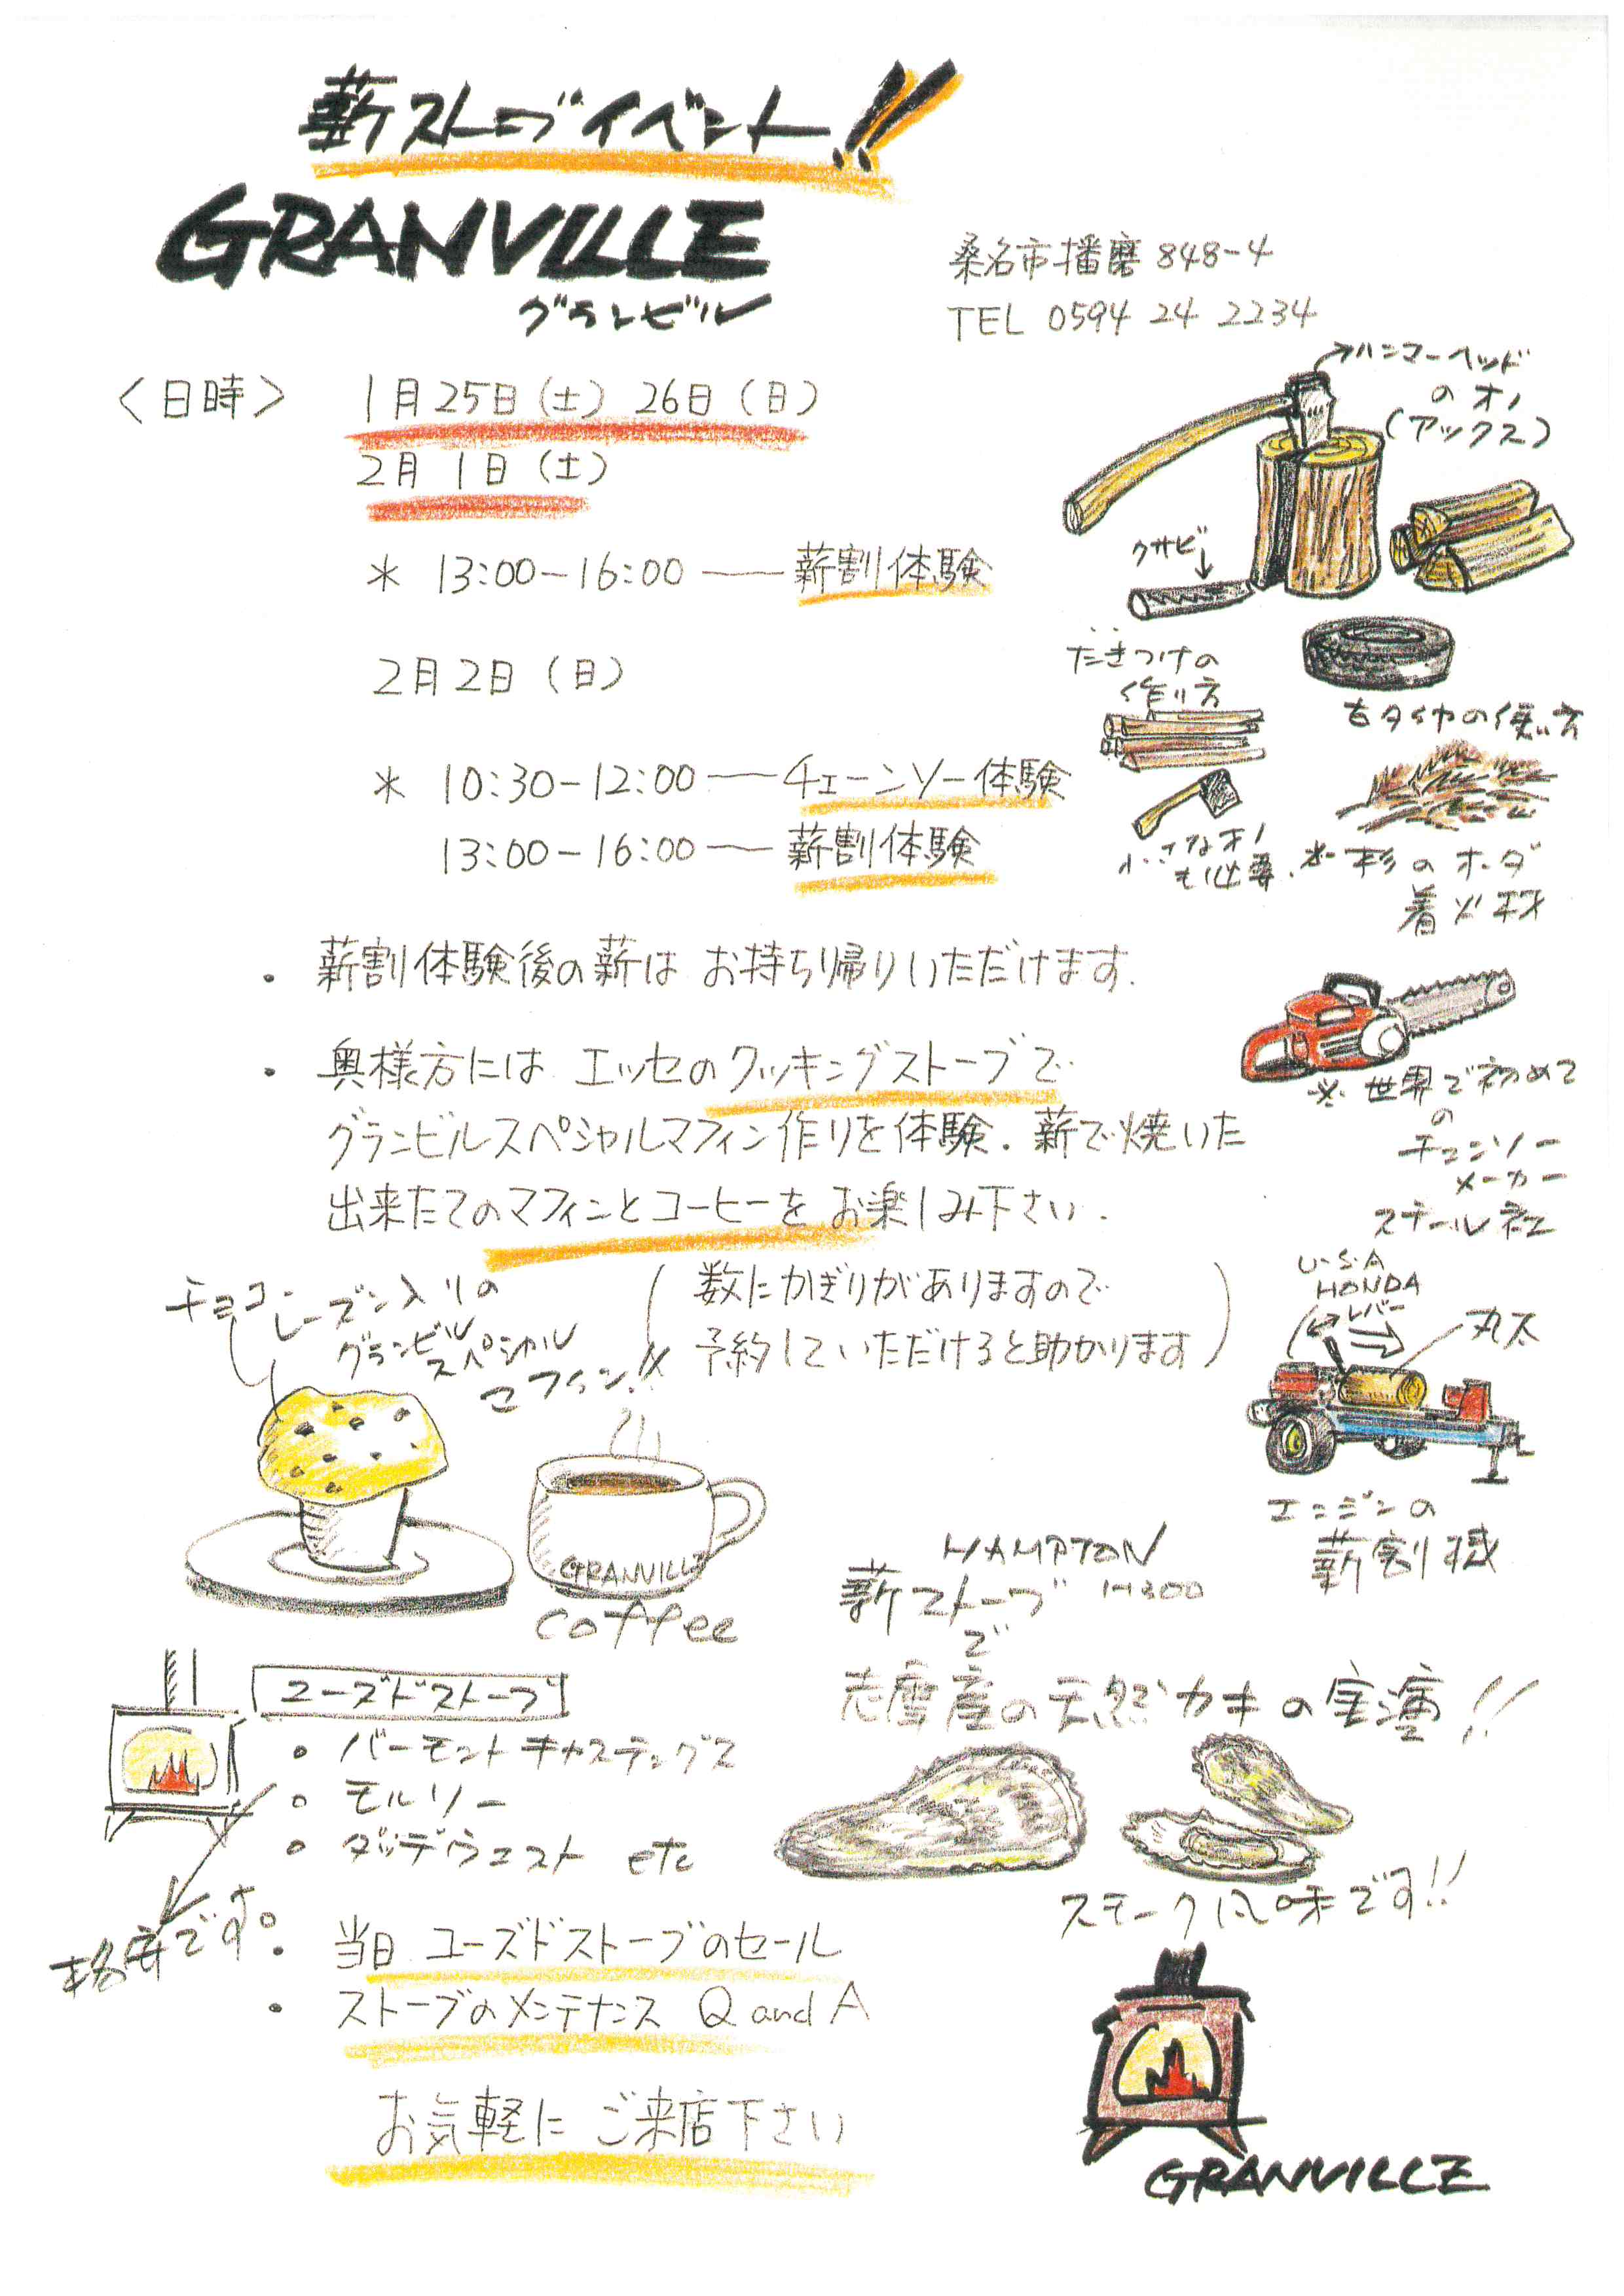 薪ストーブイベント!!
GRANVILLE
グランビル
桑名市播磨 848-4
TEL 0594 24 2234
<日時> 1月25日(土) 26日(日)
2月1日(土)
* 13:00-16:00 ── 薪割体験
2月2日(日)
* 10:30-12:00 ── チェーンソー体験
13:00-16:00 ── 薪割体験
ハンマーヘッド
のオノ
(アックス)
クサビ
だきつけの
作り方
古タイヤの使い方
小さなオノ
も必要.
※ 杉のホダ
着火材
・ 薪割体験後の薪は お持ち帰りいただけます.
・ 奥様方には エッセのクッキングストーブで
グランビルスペシャルマフィン作りを体験. 薪で焼いた
出来たてのマフィンとコーヒーを お楽しみ下さい.
(数にかぎりがありますので
予約していただけると助かります)
※ 世界で初めて
の
チェンソー
メーカー
スチール社
チョコ・
レーズン入りの
グランビル
スペシャル
マフィン!!
GRANVILLE
coffee
U・S・A
HONDA
レバー
丸太
エンジンの
薪割機
HAMPTON
薪ストーブ H300
で
志摩産の天然カキの実演!!
スモーク風味です!!
ユーズドストーブ
・ バーモントキャスティングス
・ モルソー
・ ダッチウエスト etc
格安です。
・ 当日 ユーズドストーブのセール
・ ストーブのメンテナンス Q and A
お気軽に ご来店下さい
GRANVILLE